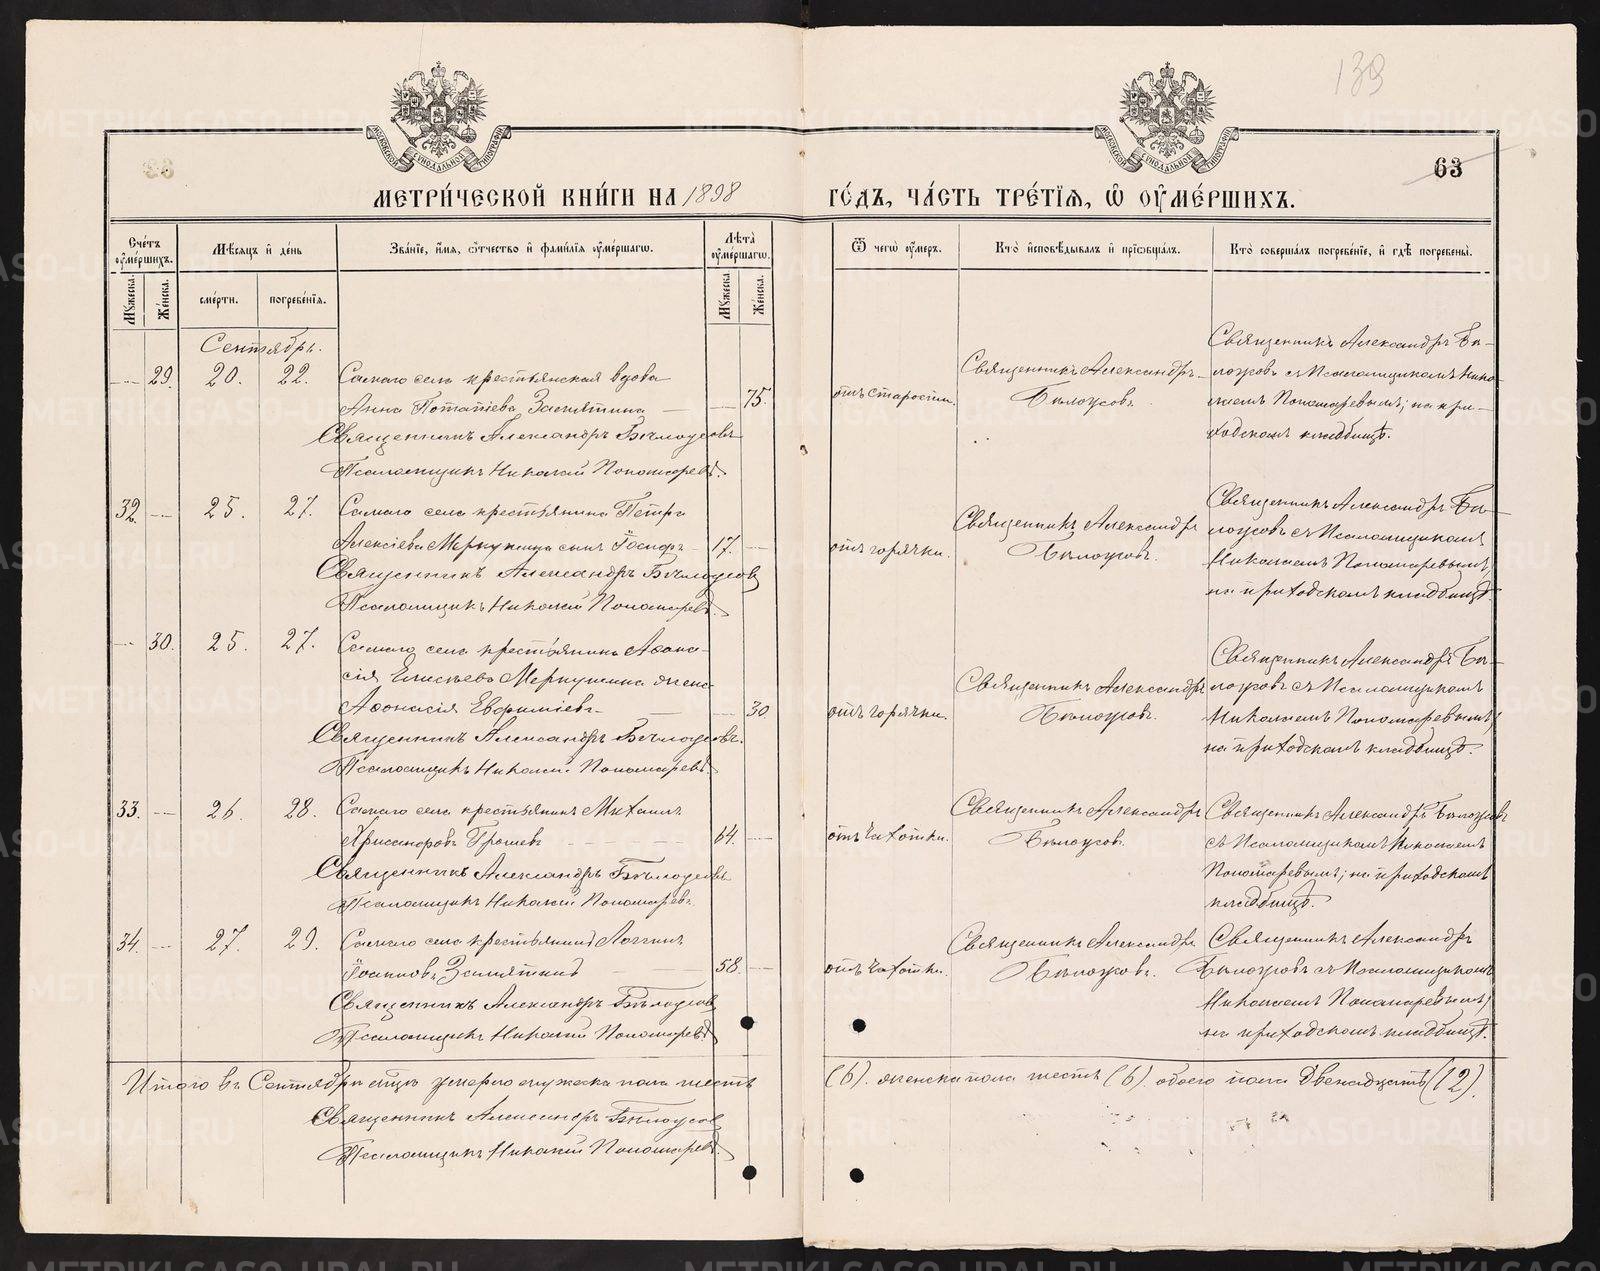 139
63
МЕТРИ́ЧЕСКОЙ КНИ́ГИ НА 1898 ГО́ДЪ, ЧА́СТЬ ТРЕ́ТІѦ, Ѽ ОУ҆МЕ́РШИХЪ.
Сче́тъ оу҆ме́ршихъ.
Мѣ́сяцъ и҆ де́нь
Зва́нїе, и҆́мѧ, ѻ҆́тчество и҆ фами́лїѧ оу҆ме́ршагѡ.
Лѣ́та оу҆ме́ршагѡ.
Ѿ чегѡ̀ оу҆́меръ.
Кто̀ и҆сповѣ́дывалъ и҆ прїѡбща́лъ.
Кто̀ соверша́лъ погребе́нїе, и҆ гдѣ̀ погребены̀.
Мꙋ́жеска.
Же́нска.
сме́рти.
погребе́нїѧ.
Мꙋ́жеска.
Же́нска.
Сентябрь.
29. 20. 22. Самаго села крестьянская вдова
Анна Потапіева Замятина 75.
Священникъ Александръ Бѣлоусовъ
Псаломщикъ Николай Пономаревъ.
отъ старости.
Священникъ Александръ
Бѣлоусовъ.
Священникъ Александръ Бѣ-
лоусовъ съ Псаломщикомъ Нико-
лаемъ Пономаревымъ; на при-
ходскомъ кладбищѣ.
32. 25. 27. Самаго села крестьянина Петра
Алексіева Меркушина сынъ 17.
Священникъ Александръ Бѣлоусов
Псаломщикъ Николай Пономаревъ.
отъ горячки.
Священникъ Александръ
Бѣлоусовъ.
Священникъ Александръ Бѣ-
лоусовъ съ Псаломщикомъ
Николаемъ Пономаревымъ,
на приходскомъ кладбищѣ.
30. 25. 27. Самаго села крестьянина Аѳана-
сія Елисѣева Меркушина жена
Аѳонасія Евфиміева 30
Священникъ Александръ Бѣлоусовъ.
Псаломщикъ Николай Пономаревъ.
отъ горячки.
Священникъ Александръ
Бѣлоусовъ.
Священникъ Александръ Бѣ-
лоусовъ съ Псаломщикомъ
Николаемъ Пономаревымъ,
на приходскомъ кладбищѣ.
33. 26. 28. Самаго села крестьянинъ Михаилъ
64.
Священникъ Александръ Бѣлоусовъ
Псаломщикъ Николай Пономаревъ.
отъ чахотки.
Священникъ Александръ
Бѣлоусовъ.
Священникъ Александръ Бѣлоусовъ
съ Псаломщикомъ Николаемъ
Пономаревымъ; на приходскомъ
кладбищѣ.
34. 27. 29. Самаго села крестьянинъ Логгинъ
Іоанновъ Замятинъ 58.
Священникъ Александръ Бѣлоусов
Псаломщикъ Николай Пономаревъ
отъ чахотки.
Священникъ Александръ
Бѣлоусовъ.
Священникъ Александръ
Бѣлоусовъ съ Псаломщикомъ
Николаемъ Пономаревымъ,
на приходскомъ кладбищѣ.
Итого въ Сентябрѣ м-цѣ умерло мужеска пола шесть (6). женска пола шесть (6). обоего пола двенадцать (12).
Священникъ Александръ Бѣлоусов
Псаломщикъ Николай Пономаревъ.